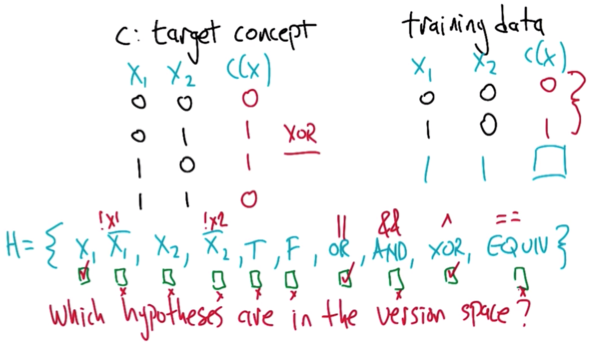 c: target concept
X₁ X₂ C(X)
0 0 0
0 1 1
1 0 1
1 1 0
XOR
training data
X₁ X₂ C(X)
0 0 0
1 0 1
1 1
!x1 !x2 || && ^ ==
H = { X₁, X̅₁, X₂, X̅₂, T, F, OR, AND, XOR, EQUIV }
Which hypotheses are in the version space?